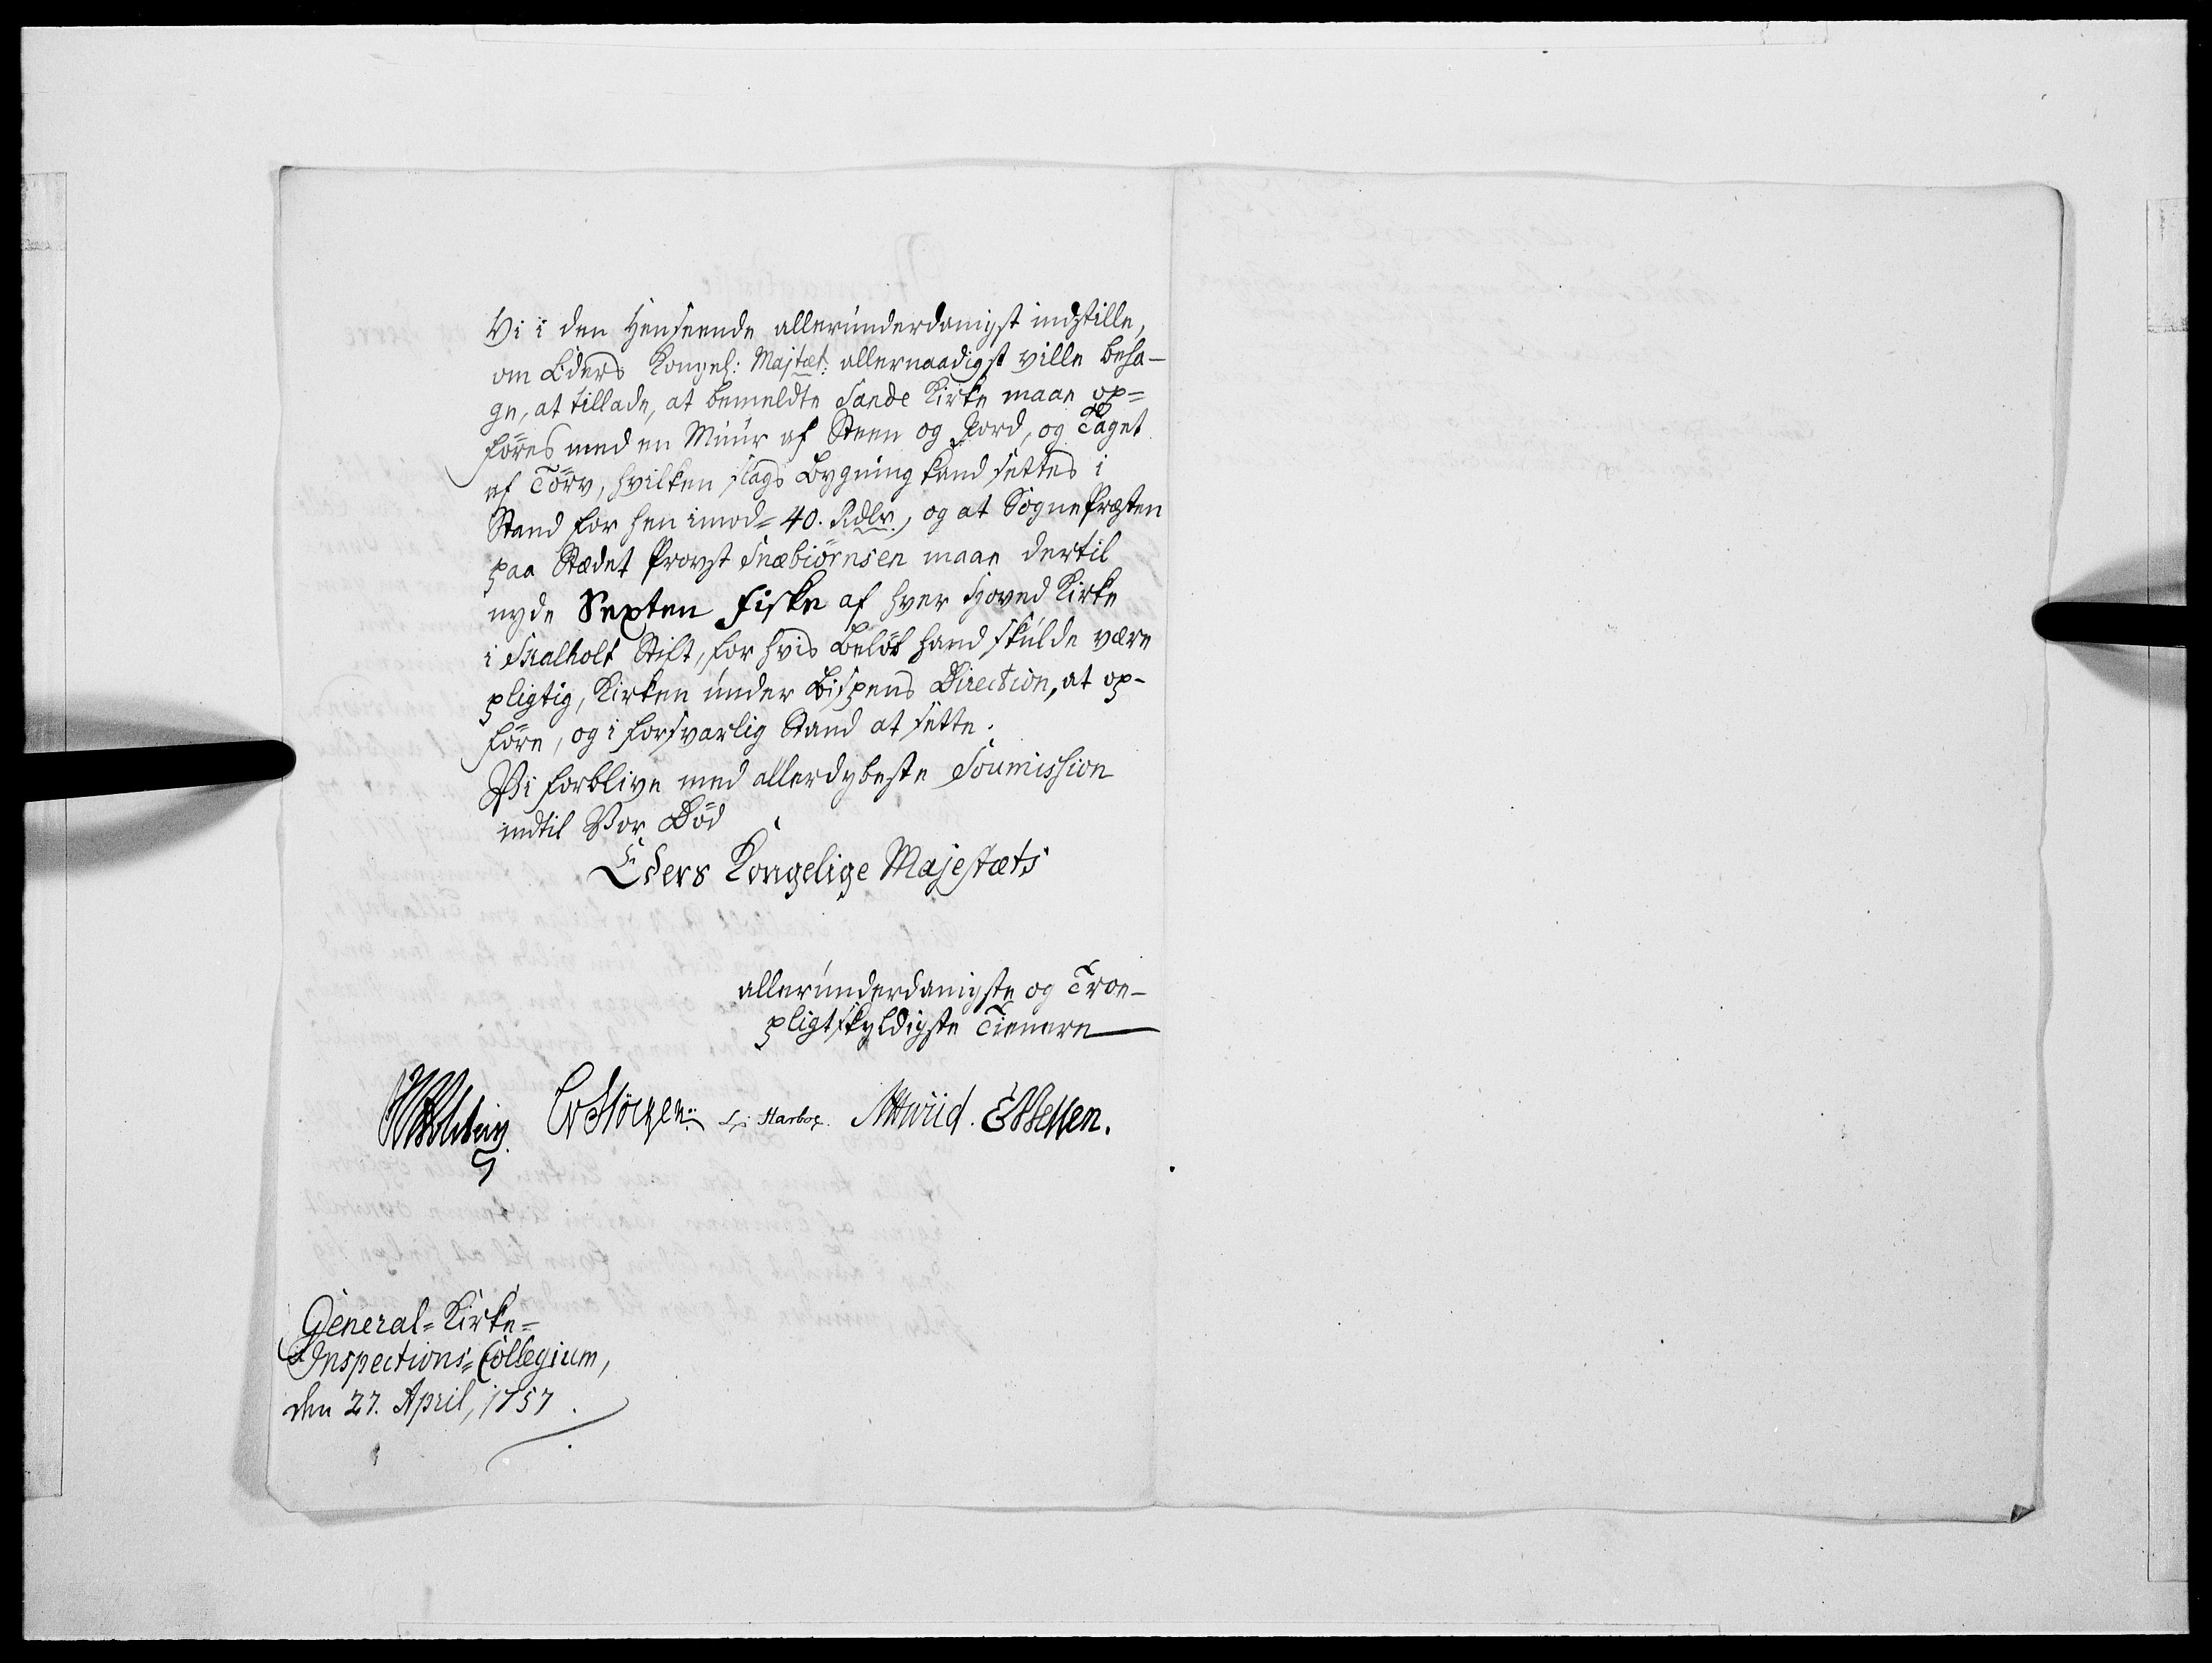 Vi i den Henseende allerunderdanigst indstille,
om Eders Kongel: Majtæt: allernaadigst ville beha-
ge, at tillade, at bemeldte Sande Kirke maae op=
föres med en Muur af Steen og Jord, og Taget
af Törv, hvilken slags Bygning kand settes i
Stand for hen imod= 40. Rdlr., og at SognePræsten
paa Stædet Provst Snæbiörnsen maae dertil
nyde Sexten Fiske af hver Hoved Kirke
i Skalholt Stift, for hvis Belöb hand skulde være
pligtig, Kirken under Bispens Direction, at op-
före, og i forsvarlig Stand at sette.
Vi forblive med allerdybeste Soumission
indtil Vor Död
Eders Kongelige Majestæts
allerunderdanigste og Troe-
pligtskyldigste Tienere
Holstein CvStöcken L: Harboe. MWüid. EHessen.
General=Kirke=
Inspections=Collegium,
den 27. April, 1757.